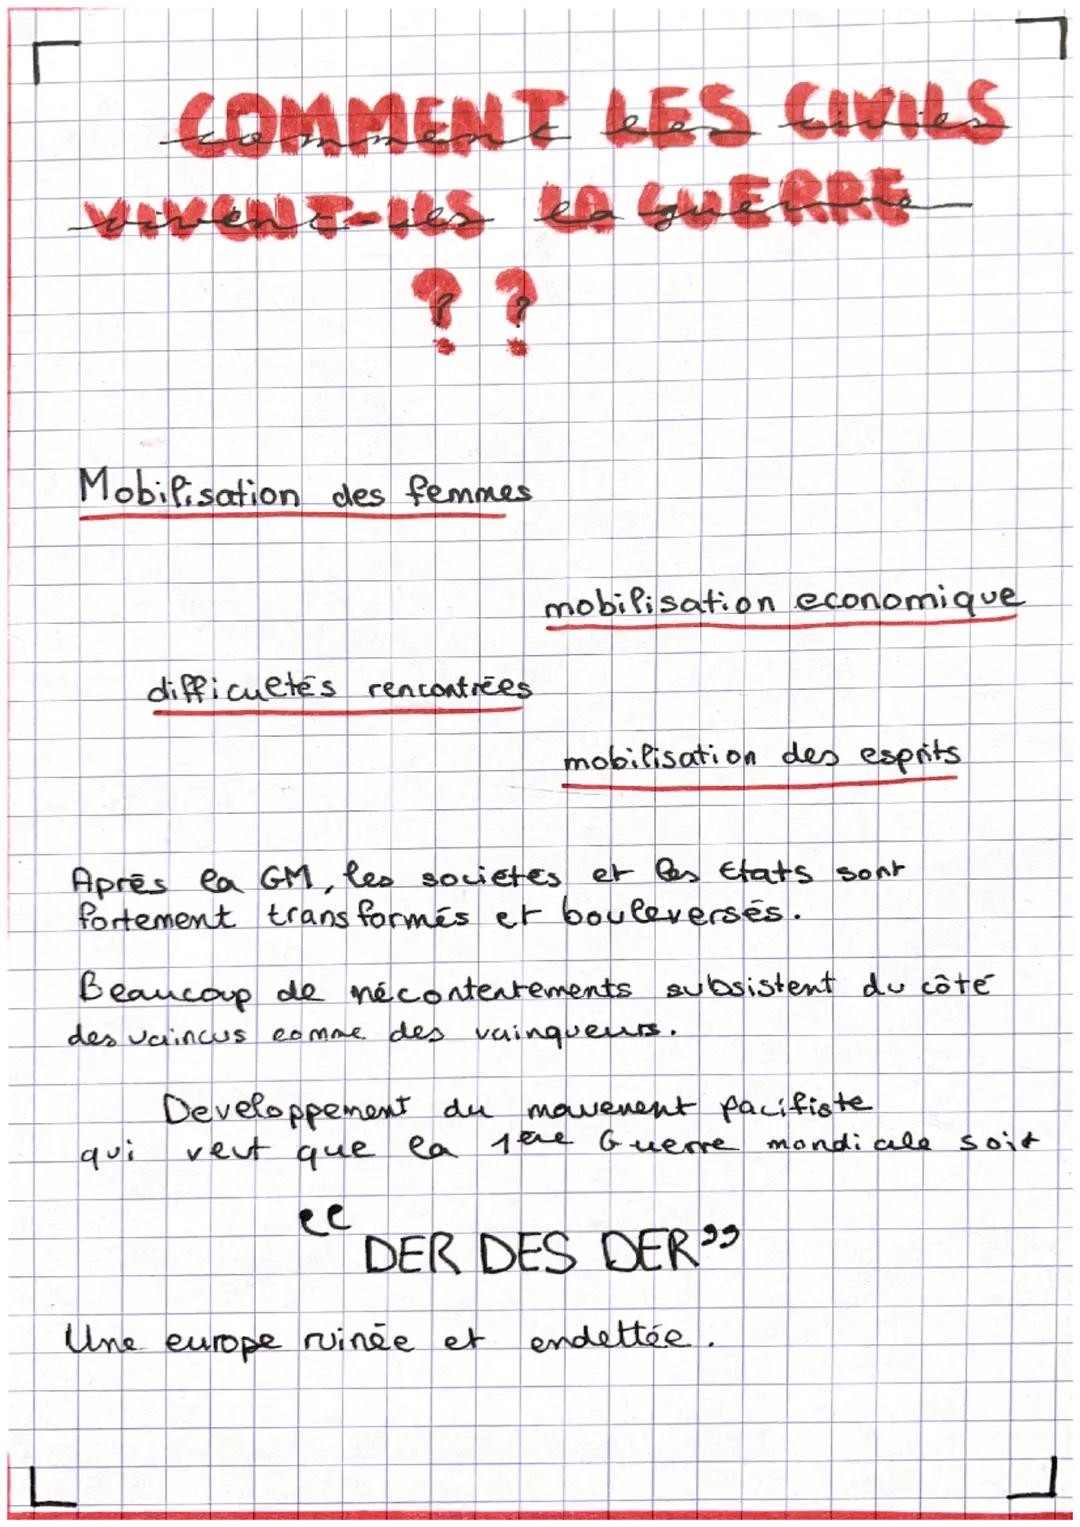 COMMENT LES CIVILS
VIVENT-ILS LA GUERRE
? ?
Mobilisation des femmes
mobilisation economique
difficultés rencontrées
mobilisation des esprits
Après la GM, les societés et les Etats sont
fortement transformés et bouleversés.
Beaucoup de mécontentements subsistent du côté
des vaincus comme des vainqueurs.
Developpement du mouvement pacifiste
qui veut que la 1ère Guerre mondiale soit
“DER DES DER”
Une europe ruinée et endettée.